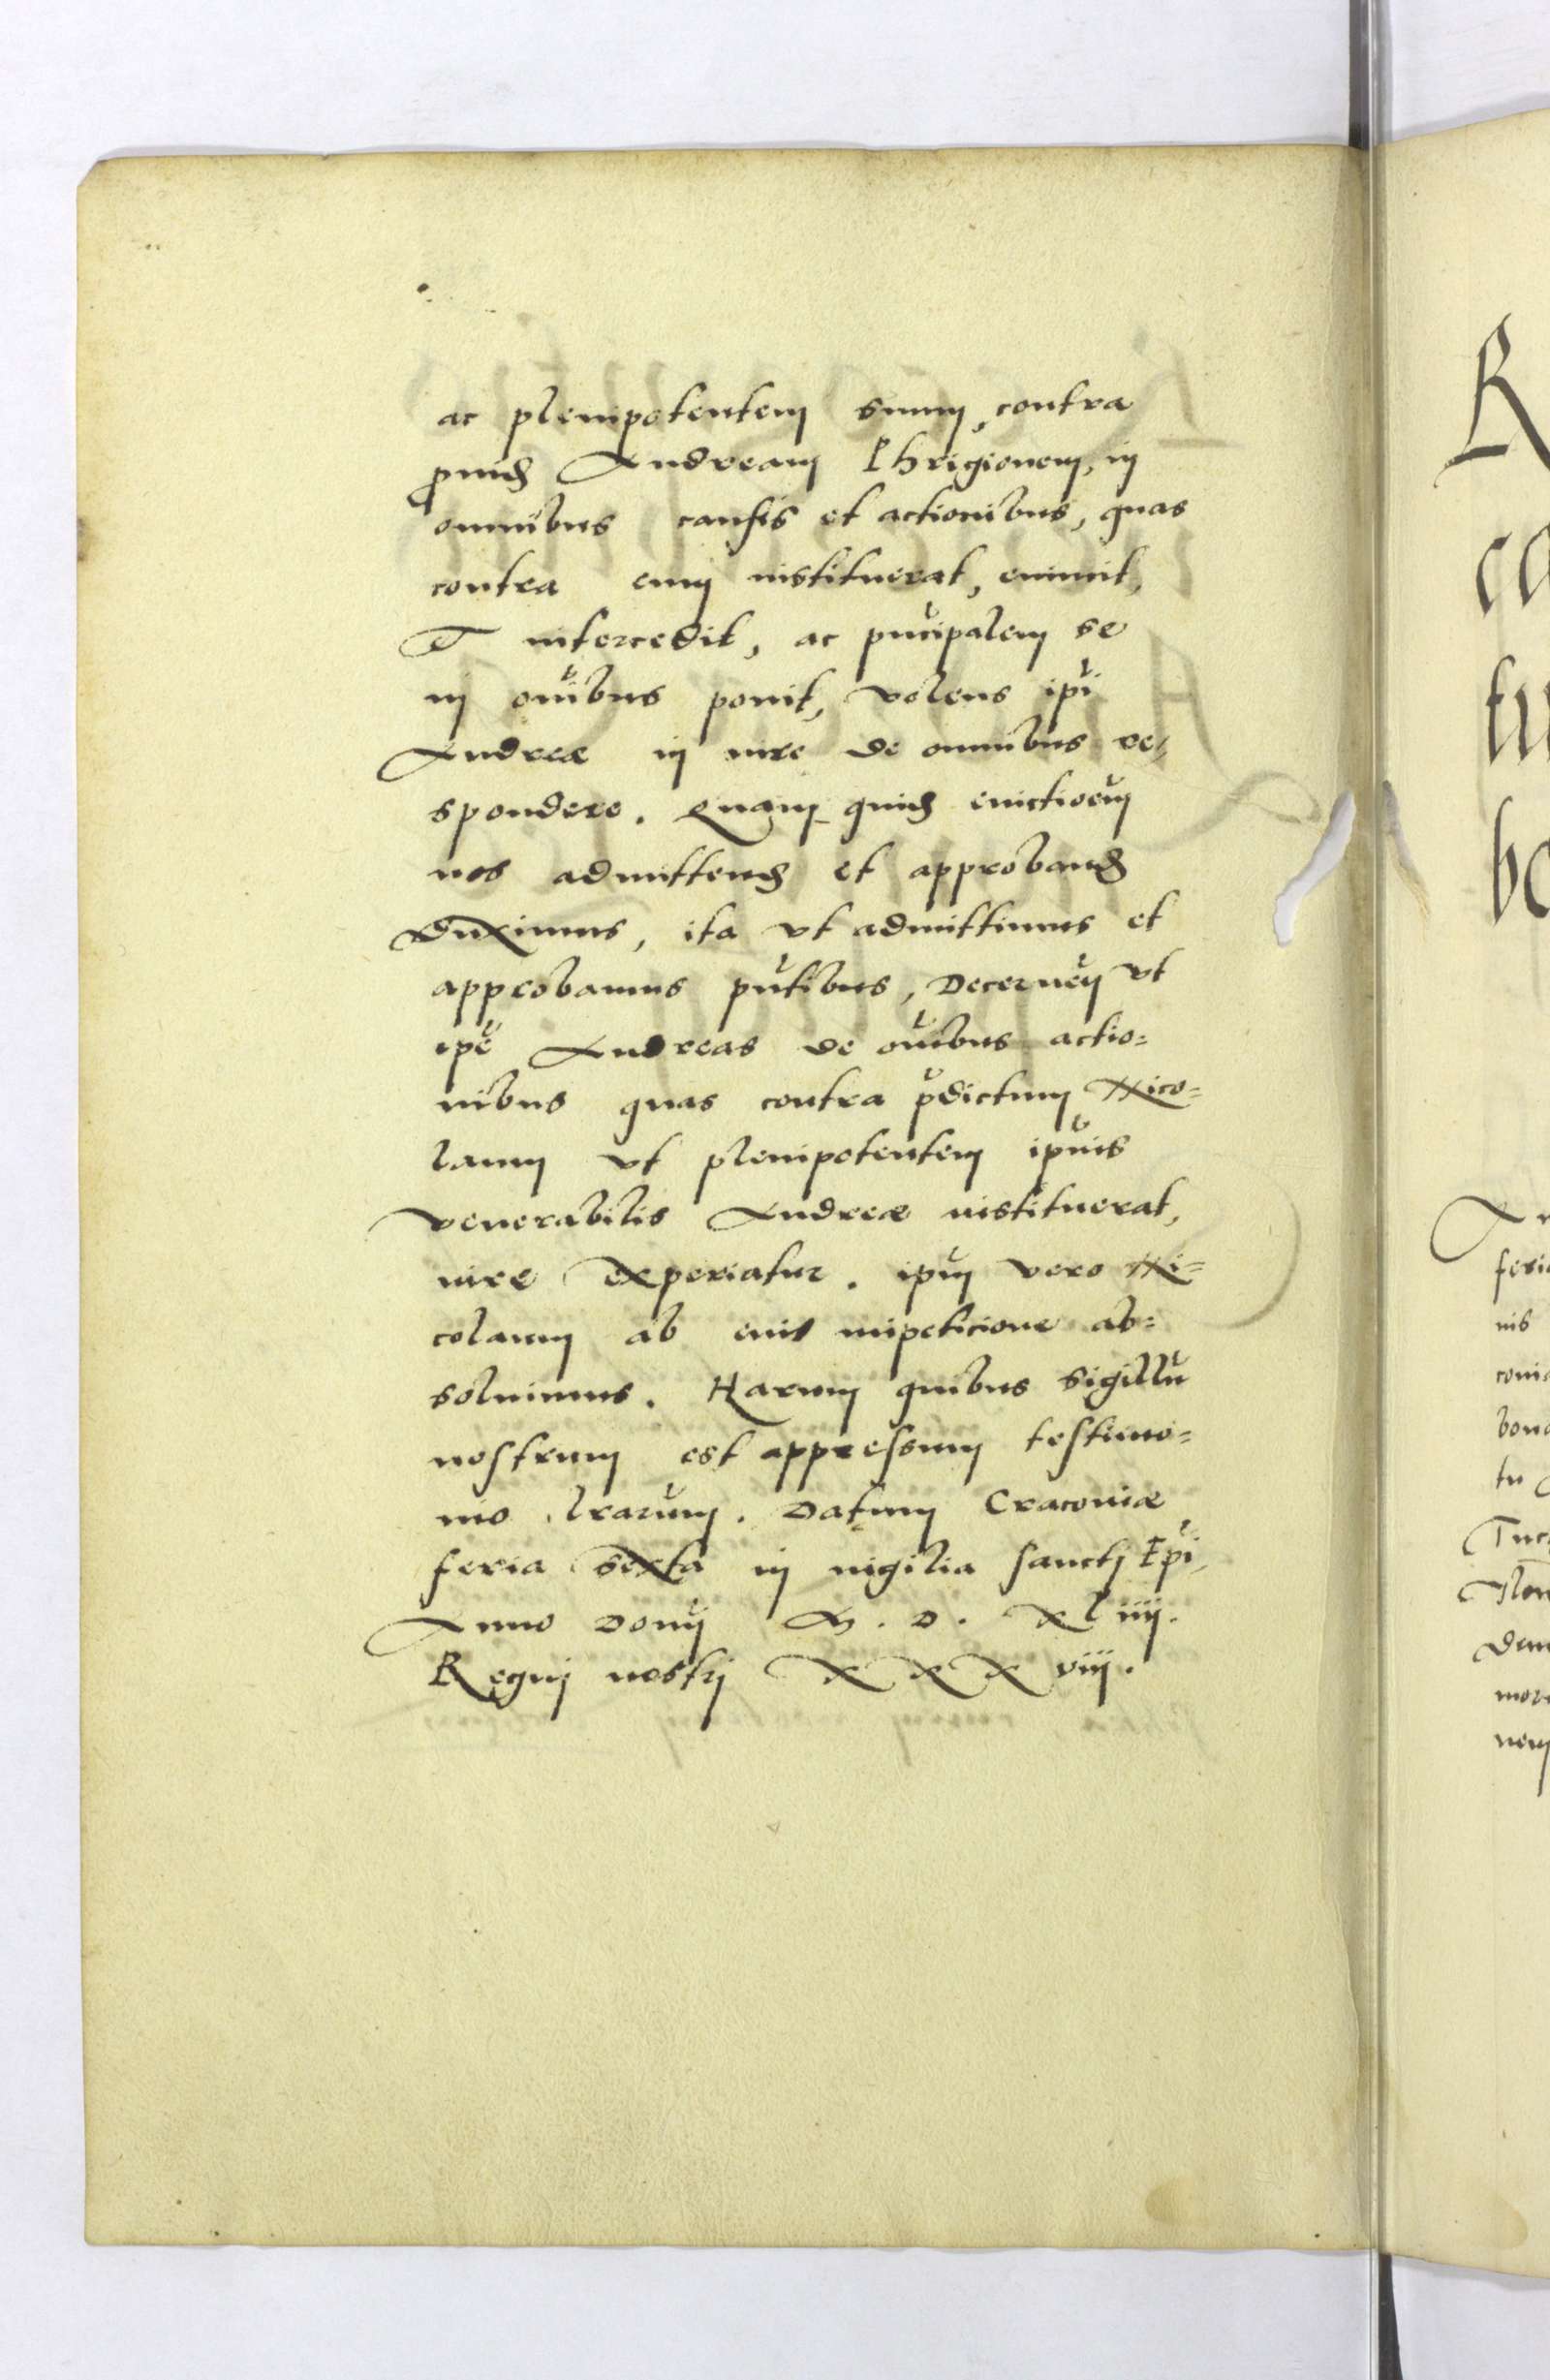 ac plenipotentem suum, contra
Andream Phrigionem, in
omnibus causis et actionibus, quas
contra eum instituerat, evincit,
et intercedit, ac pncipalem se
in omibus ponit, volens ipi
Andreæ in iure de omnibus re-
spondere. Quam quid evictioem
nos admittend et approband
duximus, ita vt admittimus et
approbamus pntibus, Decernen vt
ipe Andreas de omibus actio=
nibus quas contra pdictum Nico=
laum vt plenipotentem ipius
venerabilis Andreæ instituerat,
iure experiatur. ipm vero Ni=
colaum ab eius impeticione ab=
soluimus. Harum quibus sigillu
nostrum est appressum testimo=
nio lrarum. Datum Cracoviæ
feria sexta in vigilia sancti
Anno Domi M. D. XLiiij.
Regni nostri XXXviij.
R
ca
tu
bo
feri
nis
bon